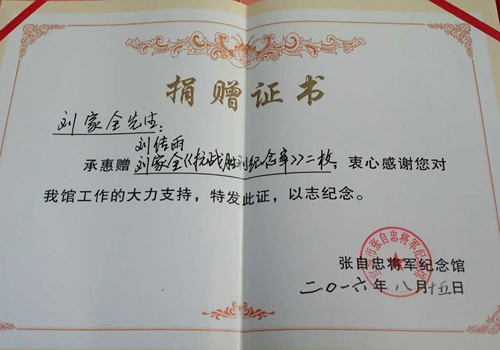 捐赠证书
刘家全先生:
刘传雨
承惠赠 刘家全《抗战胜利纪念章》二枚, 衷心感谢您对
我馆工作的大力支持，特发此证，以志纪念。
张自忠将军纪念馆
二〇一六年八月十五日